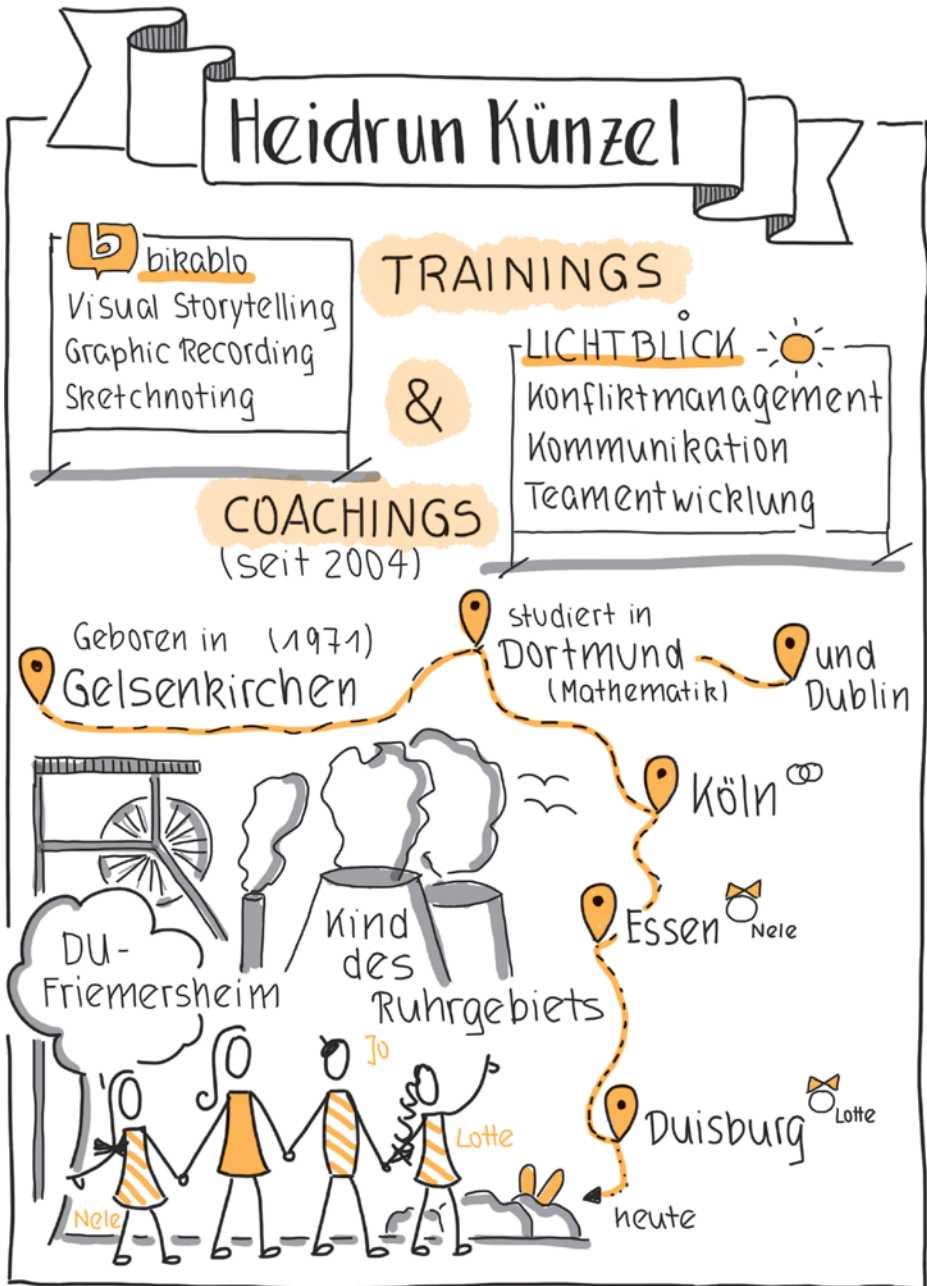 Heidrun Künzel
b bikablo
Visual Storytelling
Graphic Recording
Sketchnoting
TRAININGS
&
COACHINGS
(seit 2004)
LICHTBLICK
Konfliktmanagement
Kommunikation
Teamentwicklung
Geboren in (1971)
Gelsenkirchen
studiert in
Dortmund
(Mathematik)
und
Dublin
Köln
Essen
Nele
Kind
des
Ruhrgebiets
DU-
Friemersheim
Jo
Lotte
Nele
Duisburg
Lotte
heute